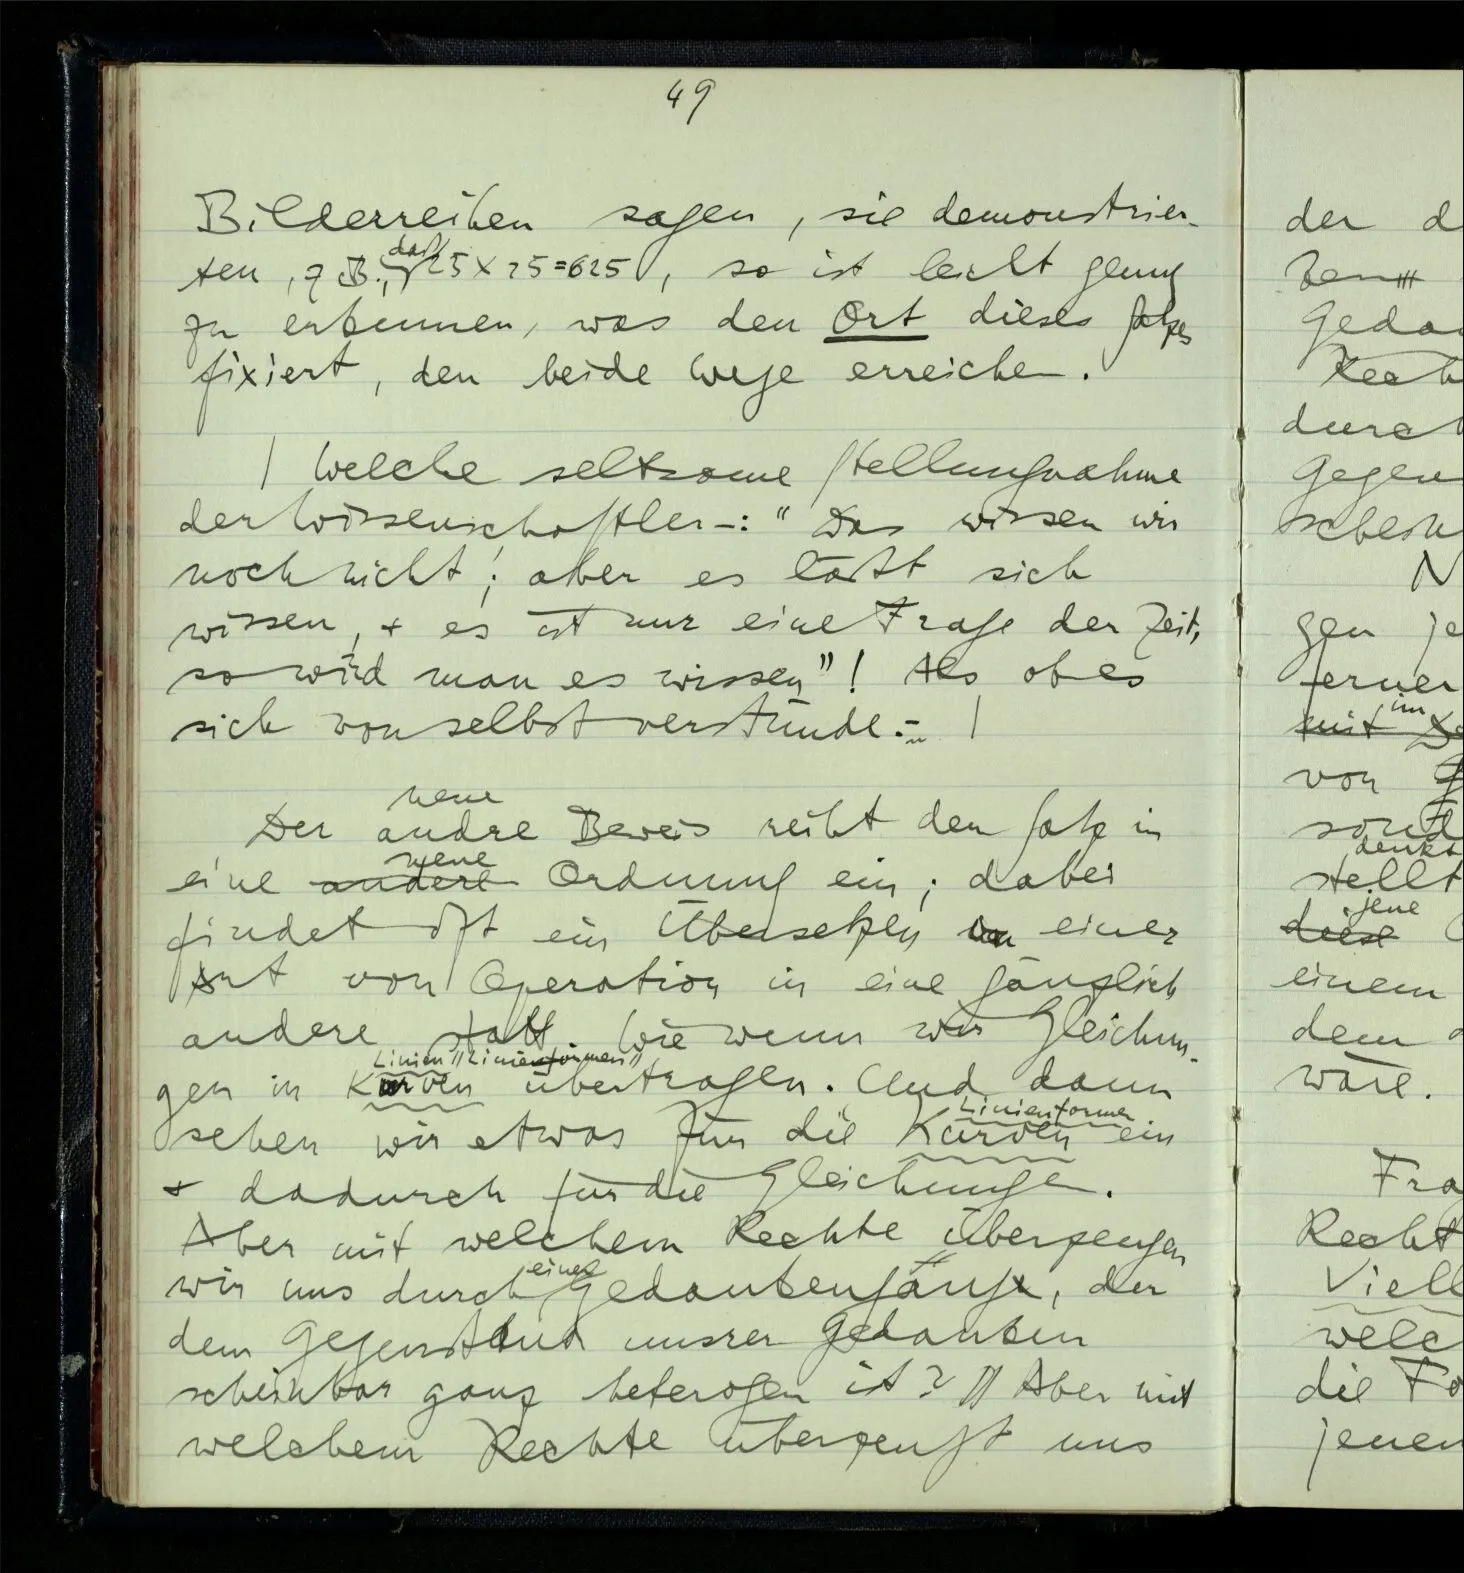 49
Bilderreihen sagen, sie demonstrier-
ten, z.B., daß 25 x 25 = 625, so ist leicht genug
zu erkennen, was den Ort dieses Satzes
fixiert, den beide Wege erreichen.
| Welche seltsame Stellungnahme
der Wissenschaftler –: "Das wissen wir
noch nicht; aber es läßt sich
wissen, + es ist nur eine Frage der Zeit,
so wird man es wissen"! Als ob es
sich von selbst verstünde. – |
neue
Der andre Beweis reiht den Satz in
neue
eine andere Ordnung ein; dabei
findet oft ein Übersetzen einer
Art von Operation in eine gänzlich
andere statt. Wie wenn wir Gleichun-
Linien // Linienformen //
gen in Kurven übertragen. Und dann
Linienformen
sehen wir etwas für die Kurven ein
+ dadurch für die Gleichungen.
Aber mit welchem Rechte überzeugen
wir uns durch Gedankengänge, der
dem Gegenstand unsrer Gedanken
scheinbar ganz heterogen ist? // Aber mit
welchem Rechte überzeugt uns
der d
Gedan
durch
Gegen
schein
N
gen je
ferner
im
mit
von
denkt
stellt
jene
diese
einem
dem
wäre.
Fra
Recht
Viell
welc
die Fo
jenen